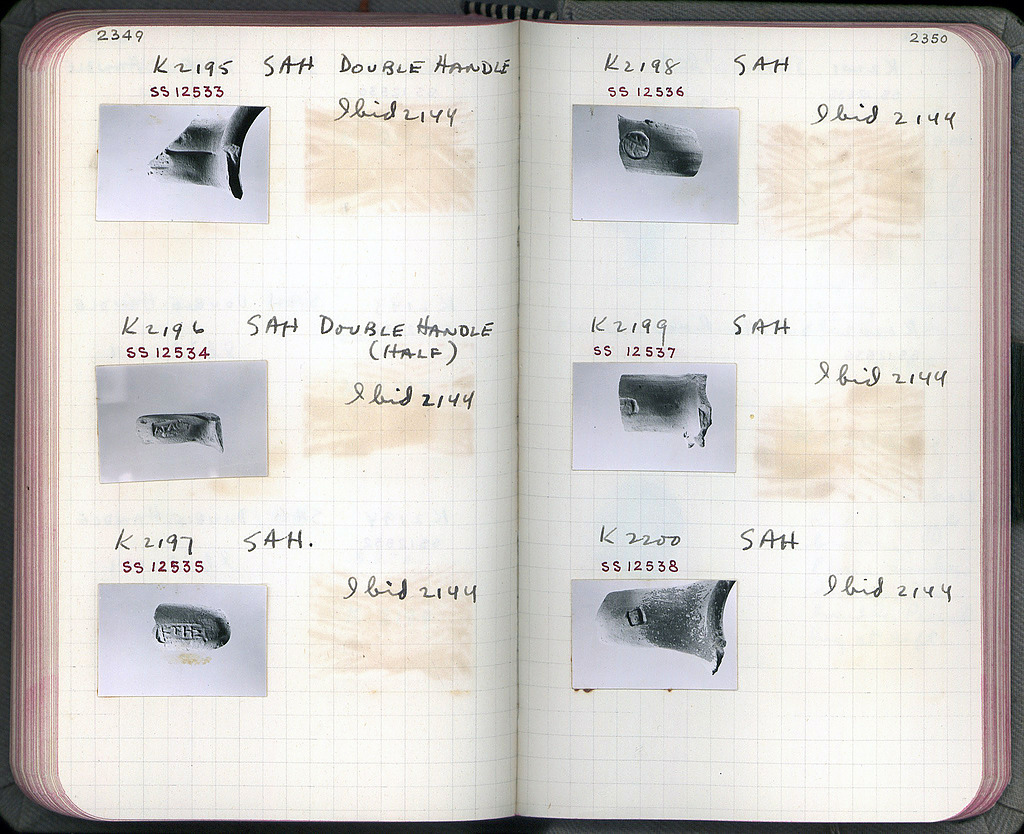 2349
K 2195 SAH DOUBLE HANDLE
SS 12533
Ibid 2144
K 2196 SAH DOUBLE HANDLE
(HALF)
SS 12534
Ibid 2144
K 2197 SAH.
SS 12535
Ibid 2144
2350
K 2198 SAH
SS 12536
Ibid 2144
K 2199 SAH
SS 12537
Ibid 2144
K 2200 SAH
SS 12538
Ibid 2144